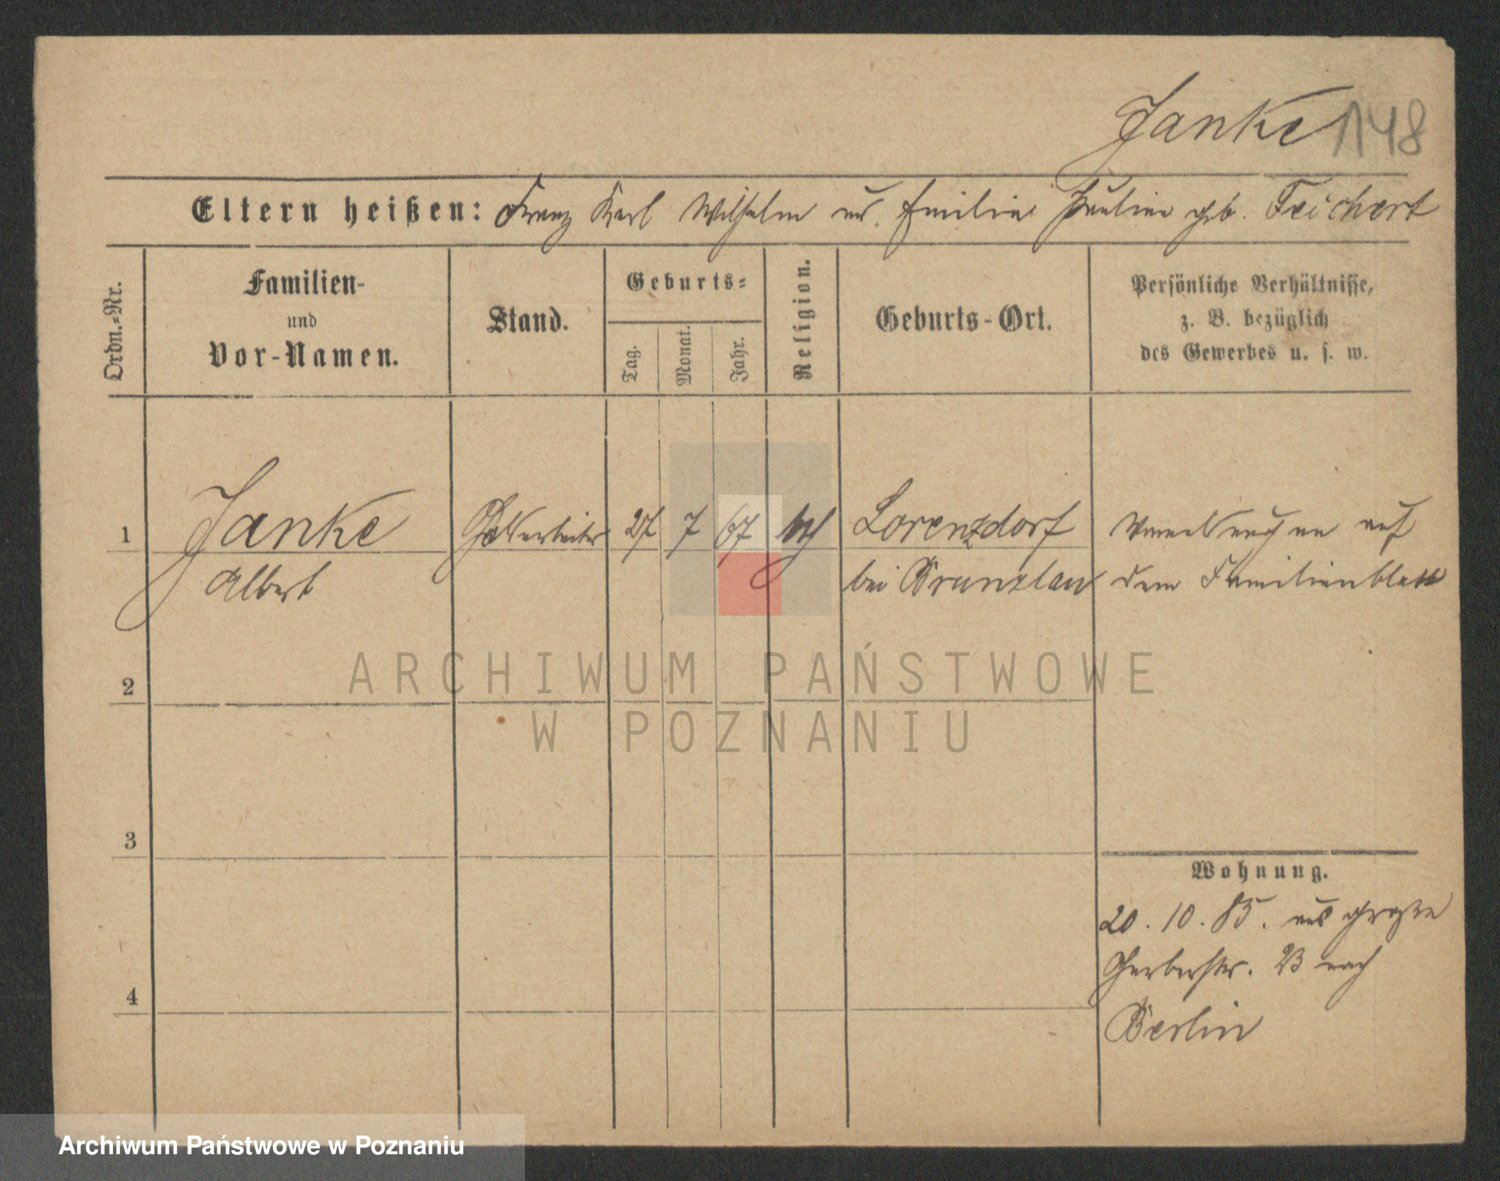 Janke 148
Eltern heißen: Franz Karl Wilhelm u. Emilie Pauline geb. Teichert
Ordn.-Nr.
Familien-
und
Vor-Namen.
Stand.
Geburts-
Tag.
Monat.
Jahr.
Religion.
Geburts-Ort.
Persönliche Verhältnisse,
z. B. bezüglich
des Gewerbes u. s. w.
1 Janke 27 7 67 Lorenzdorf auf
Albert bei Bunzlau dem Familienblatt
2
3
4
Wohnung.
20. 10. 85. aus Große
Gerberstr. 23 nach
Berlin
ARCHIWUM PAŃSTWOWE
W POZNANIU
Archiwum Państwowe w Poznaniu